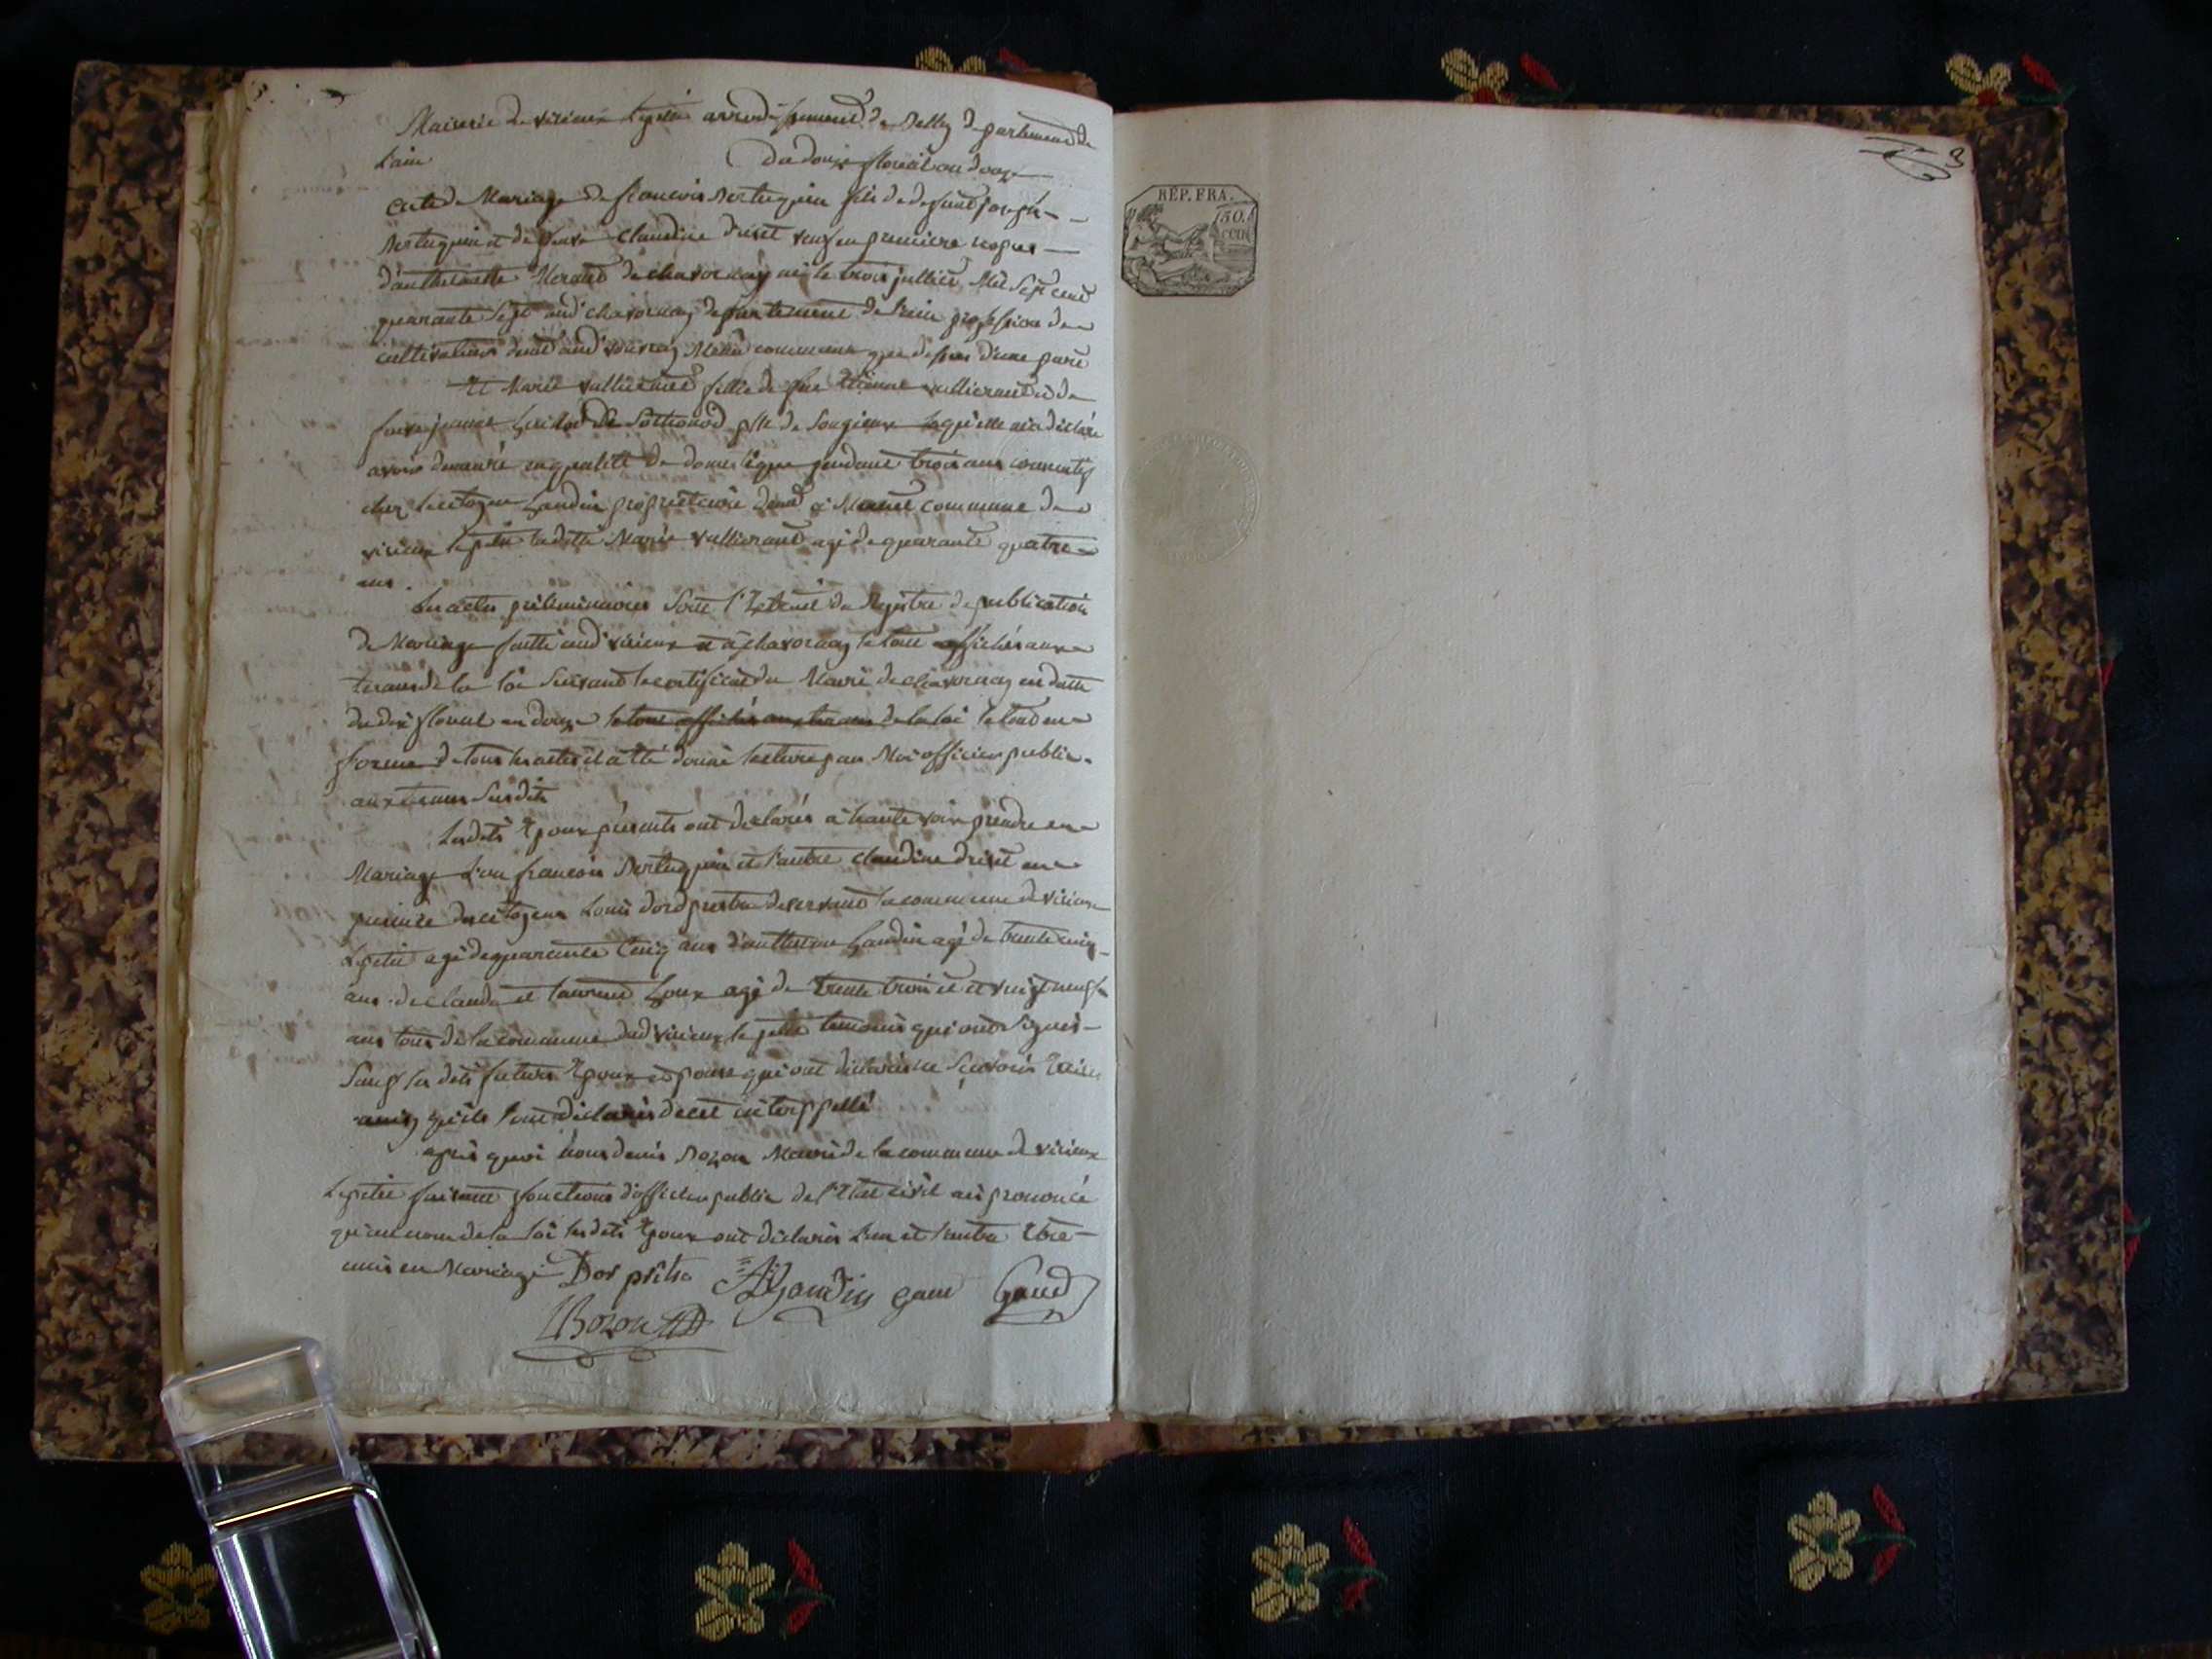 Mairie de virieux lepetit arrondissement de Belley departement de
Lain du douze floreal an douze
acte de Mariage de francois Bertuguin fils de defunt joseph
Bertuguin et de veuve Claudine drivet veuf en premiere nopces
d'anthelmette Meraud de chavornay né le trois juillet Mil Sept cent
quarante Sept aud chavornay departement de Lain profession de
cultivateur demt aud Meme commune que dessus d'une part
Et Marie vallierand fille de feu Etienne vallierand et de
jeanne de Sothonod psse de Songieux laquelle m'a déclaré
avoir demeuré en qualité de domestique pendant trois ans
chez le citoyen Gandin propriétaire demt à Munet commune de
virieux lepetit ladite Marie vallierand agé de quarante quatre
ans
Les actes préliminaires Sont l'Extrait du Registre de publication
de Mariage faitte aud virieux et à chavornay le tout affichés aux
termes de la loi Suivant le certificat du Maire de chavornay en datte
du dix floreal an douze le tout affichés aux termes de la loi le tout en
forme de tous les actes il a été donné lecture par Moi officier public
aux termes Susdits
Lesdits Epoux présents ont déclarés à haute voix prendre en
Mariage L'un francois Bertuguin et l'autre claudine drivet en
presence des citoyens Louis Dord prestre deservant la commune de virieux
Lepetit agé de quarante Cinq ans d'anthelme Gandin agé de trente cinq
ans de claude et laurend agé de trente trois et et vingt neuf
ans tous de la commune dud virieux le petit temoins qui ont Signés
Sauf les dits futurs Epoux et épouse qui ont déclarés ne Scavoir
qu'ils l'ont déclarés de ce interppellé
après quoi nous denis Bozon Maire de la commune de virieux
Lepetit faisant fonctions d'officier public de l'Etat civil ai prononcé
qu'au nom de la loi lesdits Epoux ont déclarés l'un et l'autre Etre
unis en Mariage Dor prêtre Gandin
Bozon
REP. FRA.
50.
CEN
3